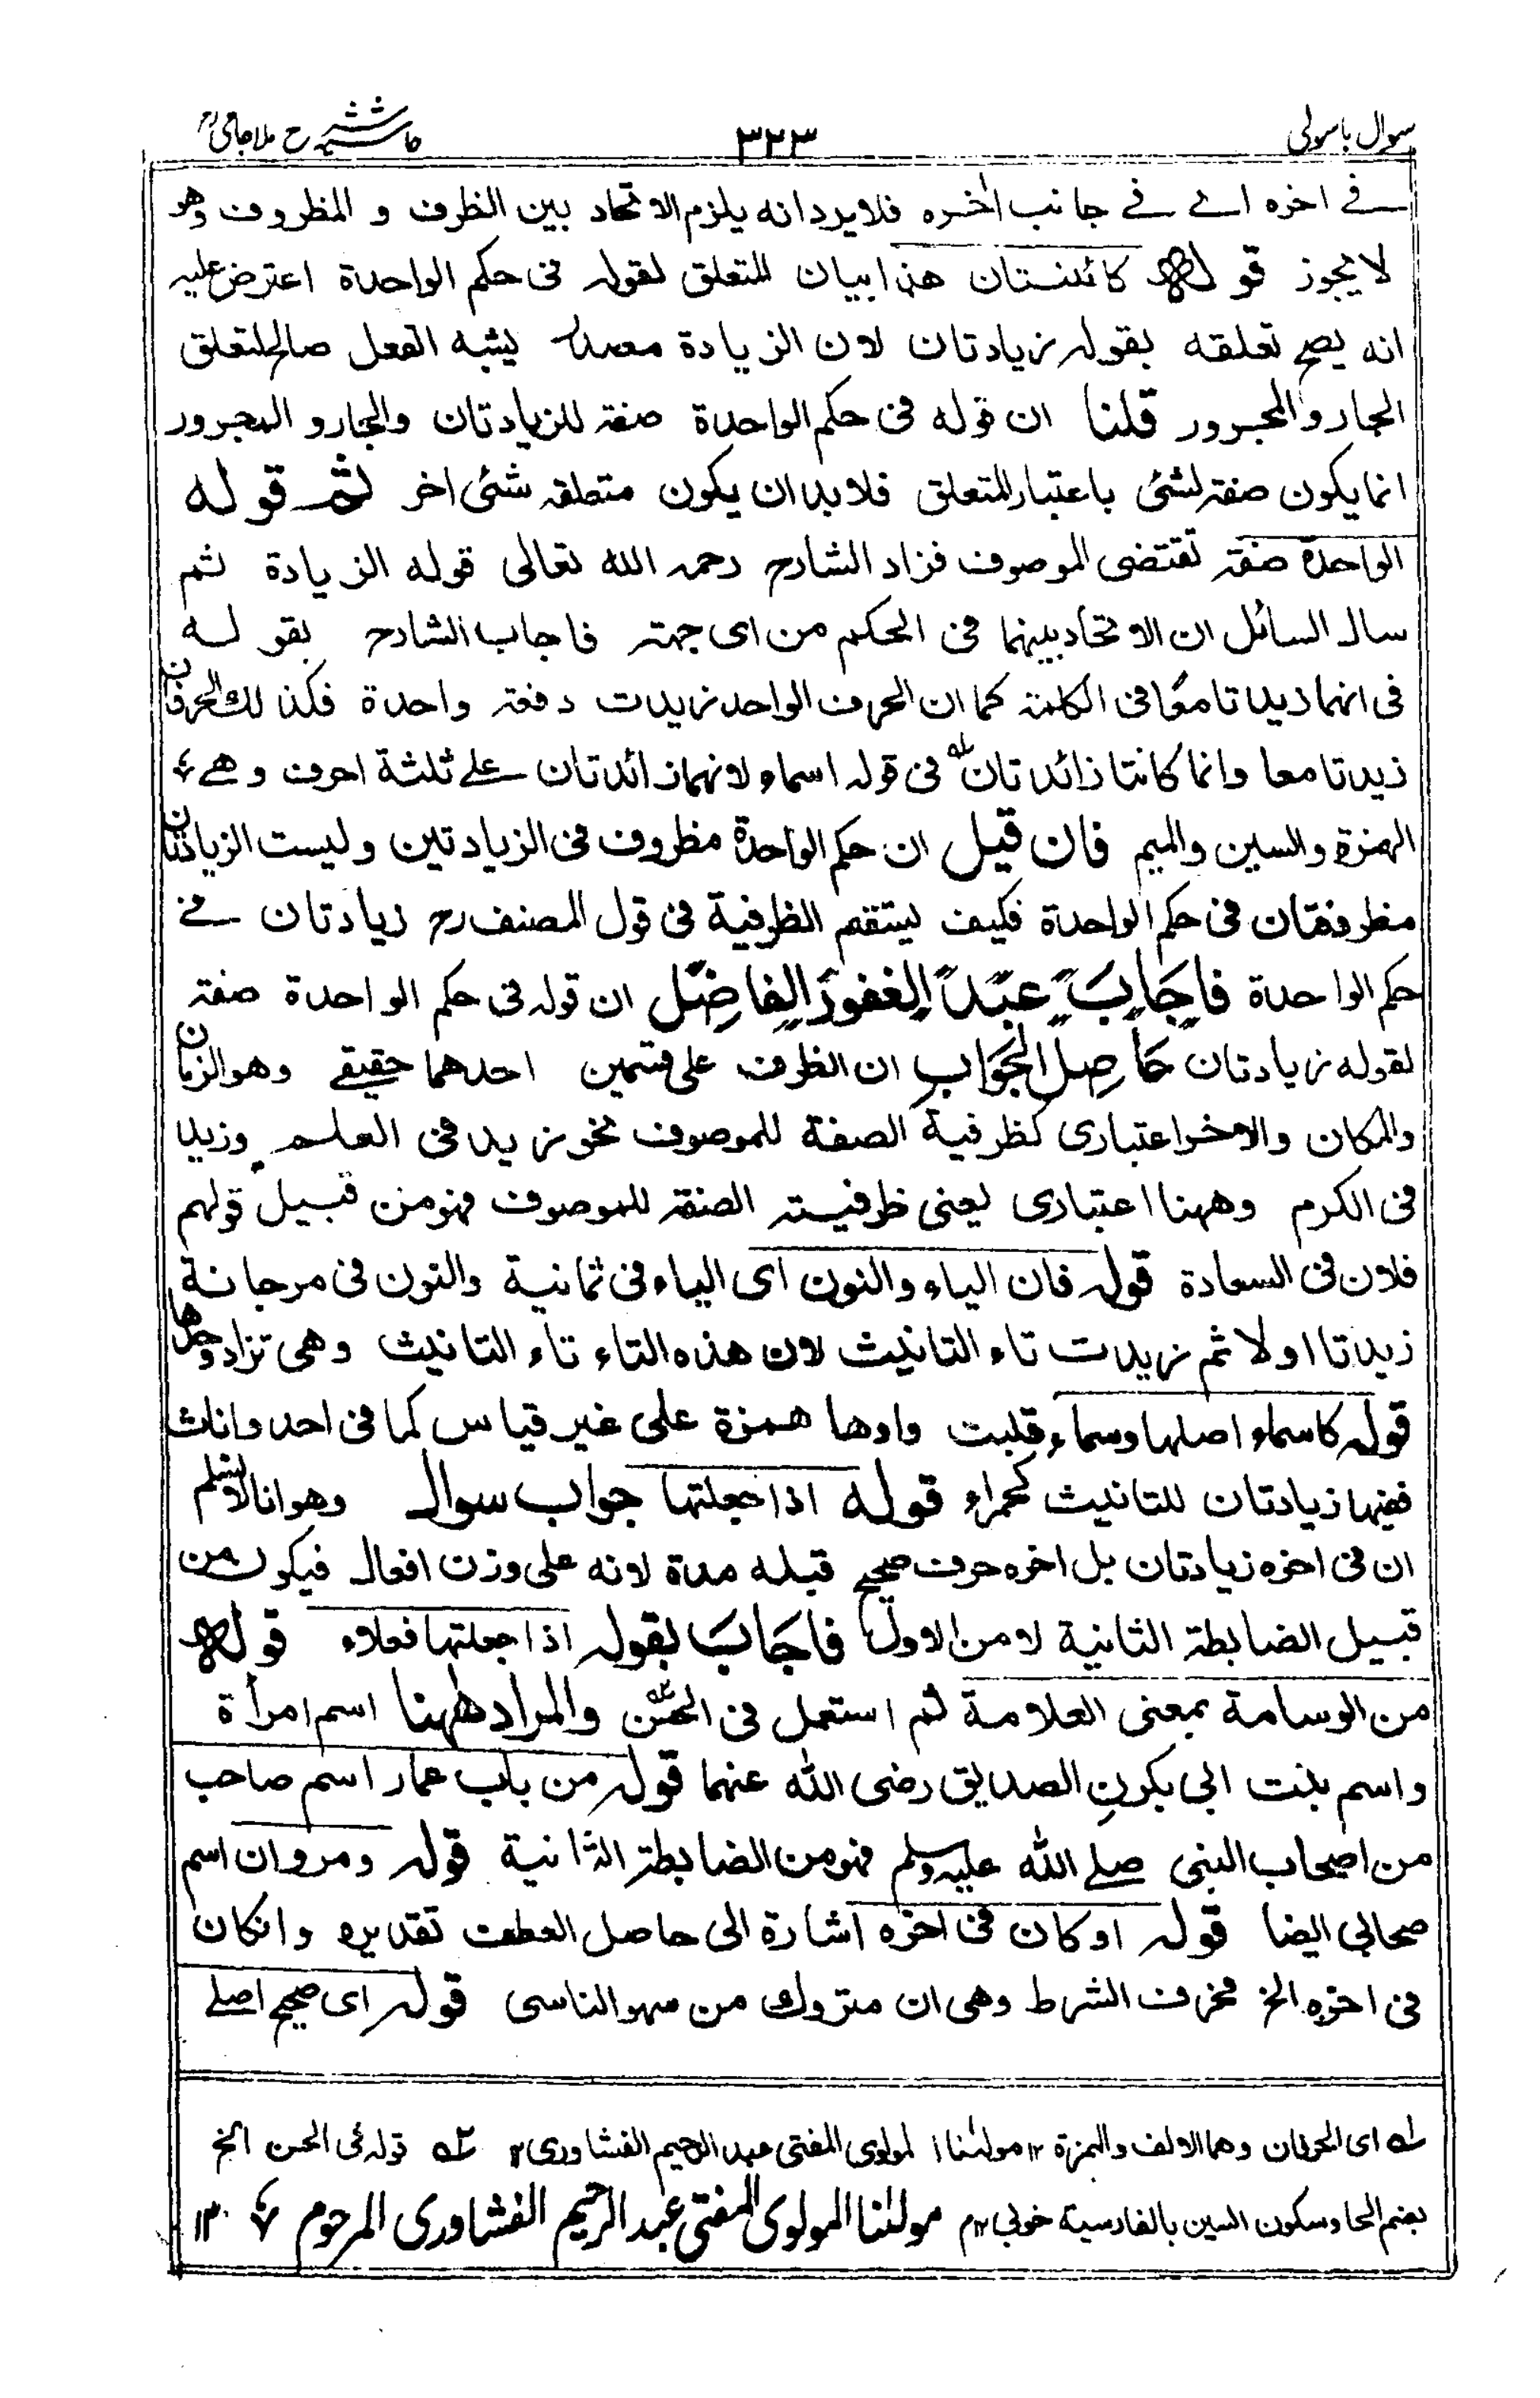 سوال باسولی
۳۲۳
حاشیہ شرح ملا جامیؒ
فے اخره اے فے جانب اخره فلا یرد انه یلزم الاتحاد بین الظرف و المظروف وهو
لا یجوز قوله کائنستان هذا بیان للمتعلق لقوله فی حکم الواحدة اعترض علیه
انه یصح تعلقه بقوله زیادتان لان الزیادة مصدر یشبه الفعل صالح لتعلق
الجار والمجرور قلنا ان قوله فی حکم الواحدة صفة للزیادتان والجار و المجرور
انما یکون صفة لشئی باعتبار المتعلق فلا بد ان یکون متعلقه شئی اخر ثم قوله
الواحدة صفة تقتضی الموصوف فزاد الشارح رحمه الله تعالی قوله الزیادة ثم
سال السائل ان الاتحاد بینهما فی الحکم من ای جهة فاجاب الشارح بقوله
فی انهما زیدتا معًا فی الکلمة کما ان الحرف الواحد زیدت دفعة واحدة فکذلك الحرفان
زیدتا معا وانما کانتا زائدتان لہ فی قوله اسماء لانهما زائدتان علے ثلثة احرف وهے
الهمزة والسین والمیم فان قیل ان حکم الواحدة مظروف فی الزیادتین ولیست الزیادتان
مظروفتان فی حکم الواحدة فکیف یستقم الظرفیة فی قول المصنف رح زیادتان فے
حکم الواحدة فاجاب عبد الغفور الفاضل ان قوله فی حکم الواحدة صفة
لقوله زیادتان حاصل الجواب ان الظرف علی قسمین احدهما حقیقے وهو الزمان
والمکان والاخر اعتباری کظرفیة الصفة للموصوف نحو زید فی العلم وزید
فی الکرم وههنا اعتباری یعنی ظرفیته الصفة للموصوف فهو من قبیل قولهم
فلان فی السعادة قوله فان الیاء والنون ای الیاء فی ثمانیة والنون فی مرجانة
زیدتا اولا ثم زیدت تاء التانیث لان هذه التاء تاء التانیث وهی تزاد وحدها
قوله کاسماء اصلها وسماء قلبت واوها همزة علی غیر قیاس کما فی احد واناث
ففیها زیادتان للتانیث کحمراء قوله اذا جعلتها جواب سوال وهو انا لا نسلم
ان فی اخره زیادتان بل اخره حرف صحیح قبله مدة لانه علی وزن افعال فیکون من
قبیل الضابطة الثانیة لا من الاول فاجاب بقوله اذا جعلتها فعلاء قوله
من الوسامة بمعنی العلامة ثم استعمل فی الحسن والمراد ههنا اسم امرأة
واسم بنت ابی بکرن الصدیق رضی الله عنهما قوله من باب عمار اسم صاحب
من اصحاب النبی صلے الله علیه وسلم فهو من الضابطة الثانیة قوله ومروان اسم
صحابی ایضا قوله او کان فی اخره اشارة الی حاصل العطف تقدیره وانکان
فی اخره الخ فحرف الشرط وهی ان متروك من سهو الناسی قوله ای صحیح اصلے
لہ ای الحرفان وهما الالف والهمزة ۱۲ مولٰنا المولوی المفتی عبد الرحیم الفشاوری ۱۲ ۲ہ قوله فی الحسن الخ
بضم الحا وسکون السین بالفارسیة خوبی ۱۲م مولٰنا المولوی المفتی عبد الرحیم الفشاوری المرحوم